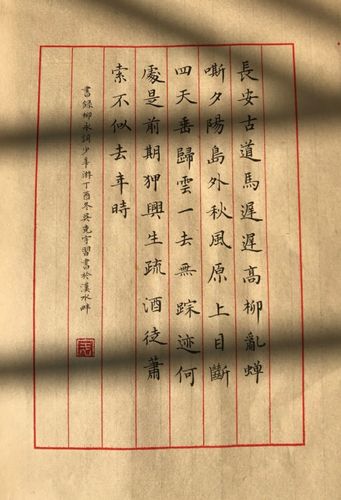 長安古道馬遲遲高柳亂蟬
嘶夕陽島外秋風原上目斷
四天垂歸雲一去無踪迹何
處是前期狎興生疏酒徒蕭
索不似去年時
書錄柳永詞少年游丁酉冬吳克宇習書於漢水畔